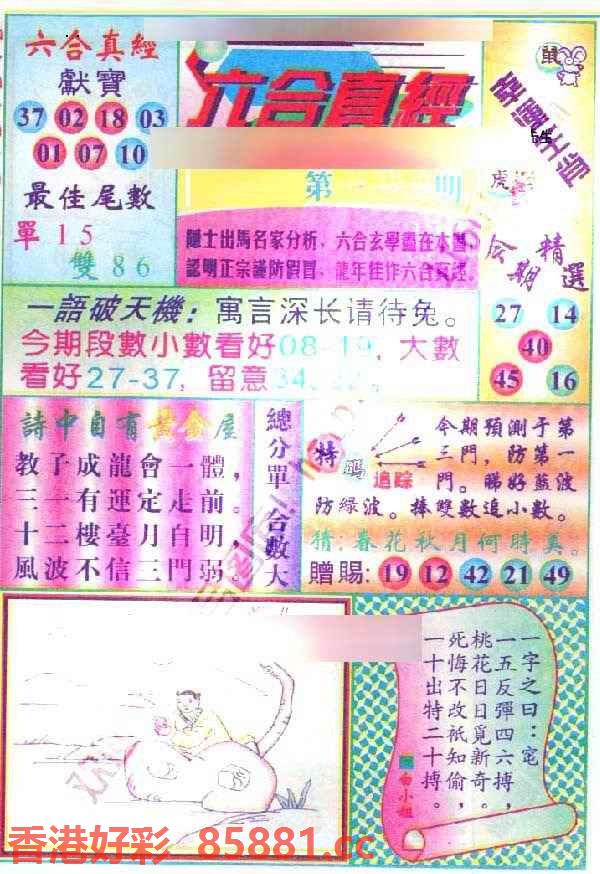 六合真經
獻寶
37 02 18 03
01 07 10
最佳尾數
單 1 5
雙 8 6
六合真經
第 期
隱士出馬名家分析，六合玄學盡在本圖，
認明正宗謹防假冒，龍年佳作六合真經。
鼠
幸運生肖
虎
今期精選
27 14
40
45 16
一語破天機：寓言深长请待兔。
今期段數小數看好08-19，大數
看好27-37，留意34、
詩中自有黃金屋
教子成龍會一體，
三一有運定走前。
十二樓臺月自明，
風波不信三門弱。
總分單 合數大
特碼
追踪
今期預測于第
三門，防第一
門。睇好藍波
防綠波。捧雙數追小數。
猜：春花秋月何時
贈賜：19 12 42 21 49
一字之曰：宅
一五反彈四六搏，
桃花日日覓新奇。
死悔不改祇知偷，
一十出特二十搏。
白小姐
香港好彩 85881.cc